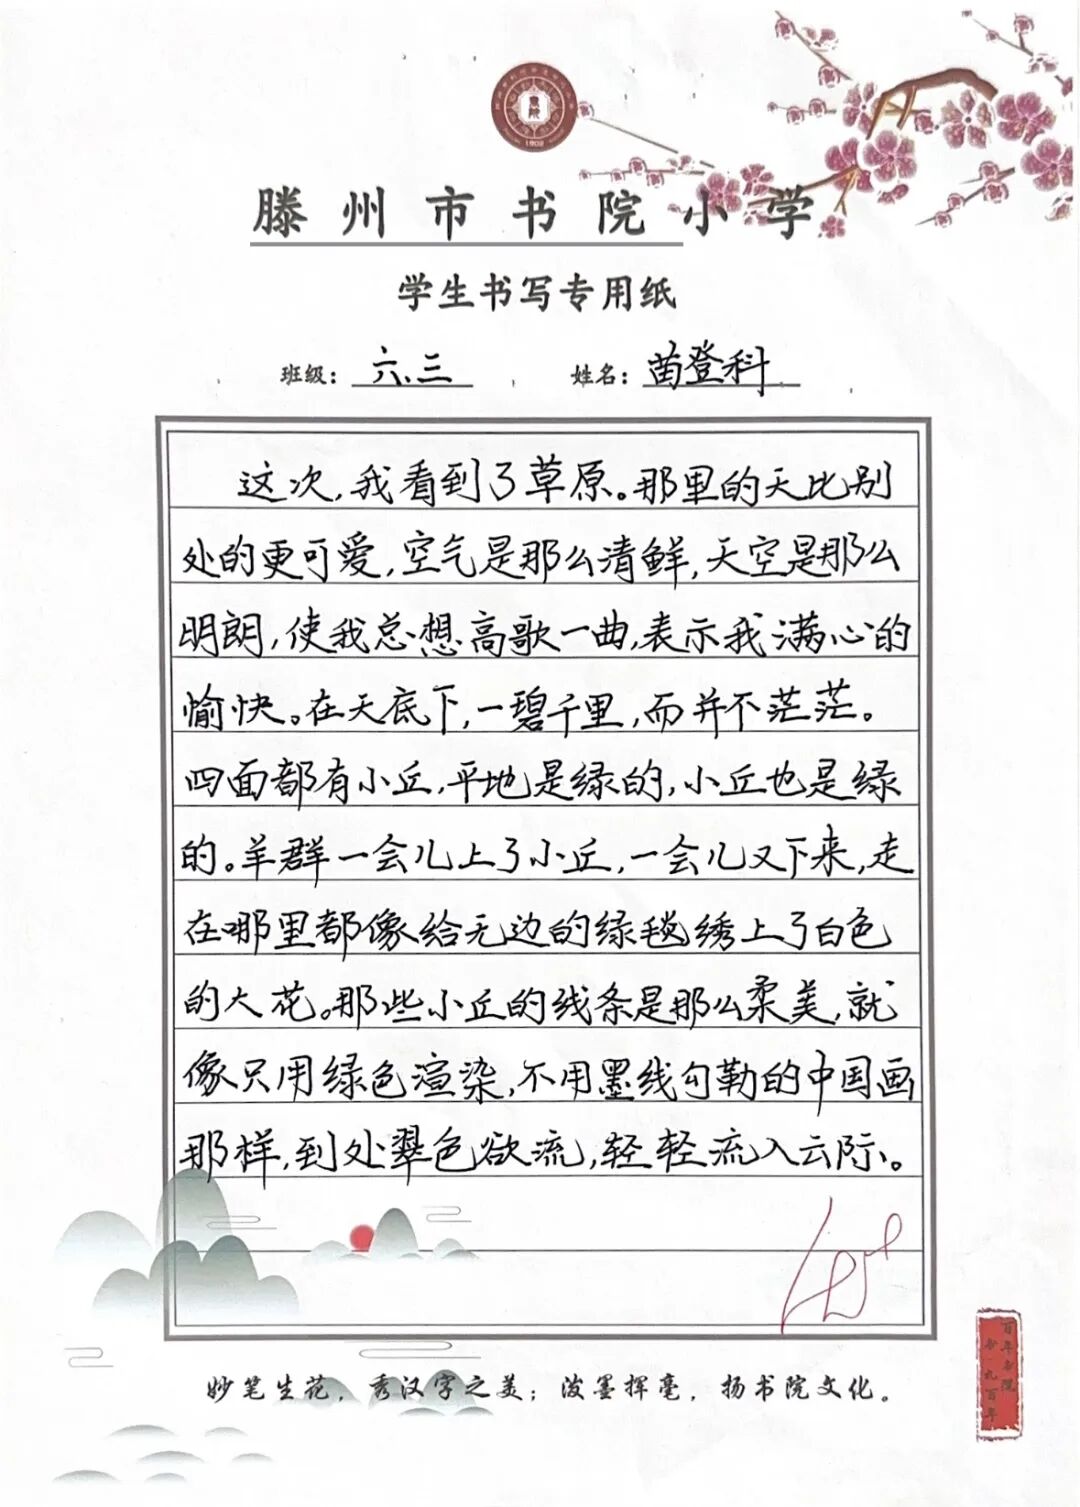 書院
1902
滕州市书院小学
学生书写专用纸
班级：六.三 姓名：苗登科
这次,我看到了草原。那里的天比别
处的更可爱,空气是那么清鲜,天空是那么
明朗,使我总想高歌一曲,表示我满心的
愉快。在天底下,一碧千里,而并不茫茫。
四面都有小丘,平地是绿的,小丘也是绿
的。羊群一会儿上了小丘,一会儿又下来,走
在哪里都像给无边的绿毯绣上了白色
的大花。那些小丘的线条是那么柔美,就
像只用绿色渲染,不用墨线勾勒的中国画
那样,到处翠色欲流,轻轻流入云际。
妙笔生花，秀汉字之美；泼墨挥毫，扬书院文化。